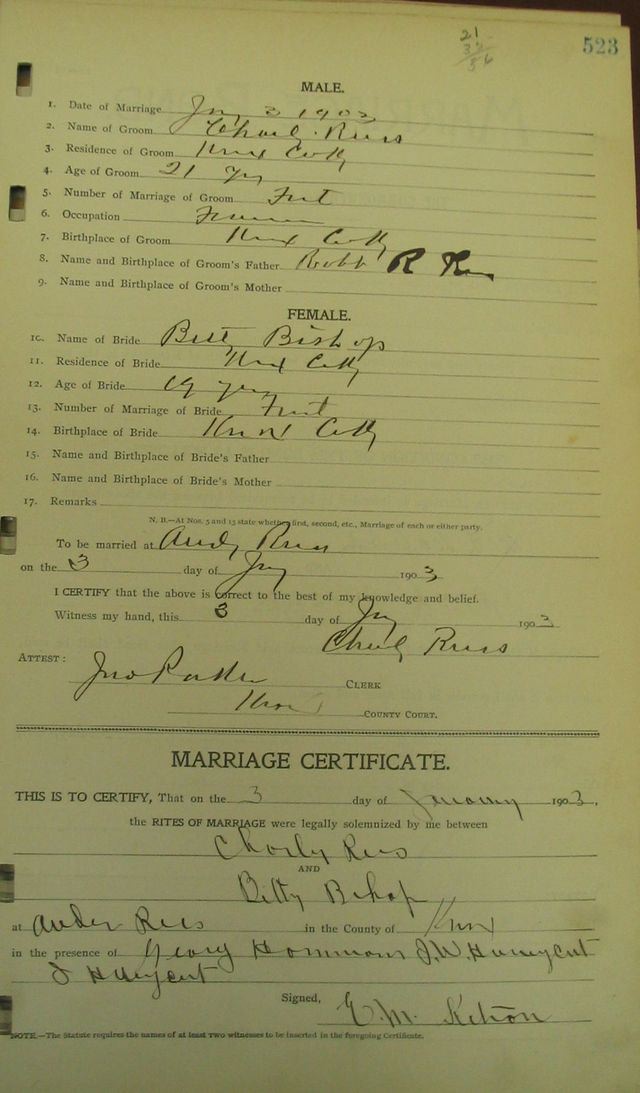 21
523
MALE.
1. Date of Marriage Jny 3 1903
2. Name of Groom Charly Rees
3. Residence of Groom Knox Co Ky
4. Age of Groom 21 yrs
5. Number of Marriage of Groom First
6. Occupation Farmer
7. Birthplace of Groom Knox Co Ky
8. Name and Birthplace of Groom's Father R
9. Name and Birthplace of Groom's Mother
FEMALE.
10. Name of Bride Betty Bishop
11. Residence of Bride Knox Co Ky
12. Age of Bride 19 yrs
13. Number of Marriage of Bride First
14. Birthplace of Bride Knox Co Ky
15. Name and Birthplace of Bride's Father
16. Name and Birthplace of Bride's Mother
17. Remarks
N. B.—At Nos. 5 and 13 state whether first, second, etc., Marriage of each or either party.
To be married at Andy Rees
on the 3 day of Jny 1903
I CERTIFY that the above is correct to the best of my knowledge and belief.
Witness my hand, this 3 day of Jny 1903
Charly Rees
ATTEST: Jno Parker CLERK
Knox COUNTY COURT.
MARRIAGE CERTIFICATE.
THIS IS TO CERTIFY, That on the 3 day of January 1903,
the RITES OF MARRIAGE were legally solemnized by me between
Charly Rees
AND
Bitty Bishop
at Ander Rees in the County of Knox
in the presence of Georg Hammons J. W. Huneycut
J Huneycut
Signed,
E. M.
NOTE.—The Statute requires the names of at least two witnesses to be inserted in the foregoing Certificate.